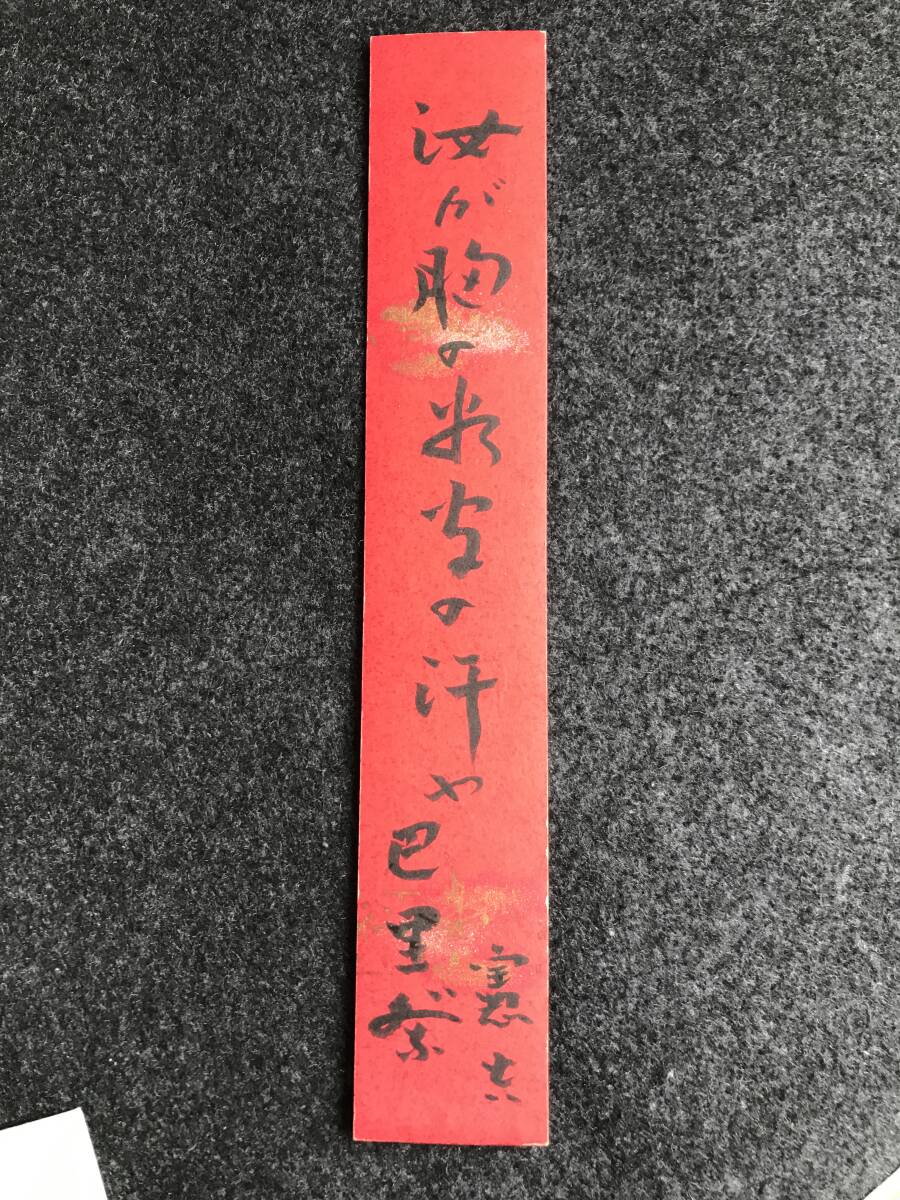 汝が胸の谷間の汗や巴里祭
憲吉